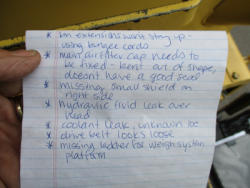 * bin extensions wont stay up -
using bungee cords
* main air filter cap needs to
be fixed - bent out of shape,
doesnt have a good seal
* missing small shield on
right side
* hydraulic fluid leak over
head
* coolant leak, unknown loc
* drive belt looks loose
* missing ladder for weigh system
platform